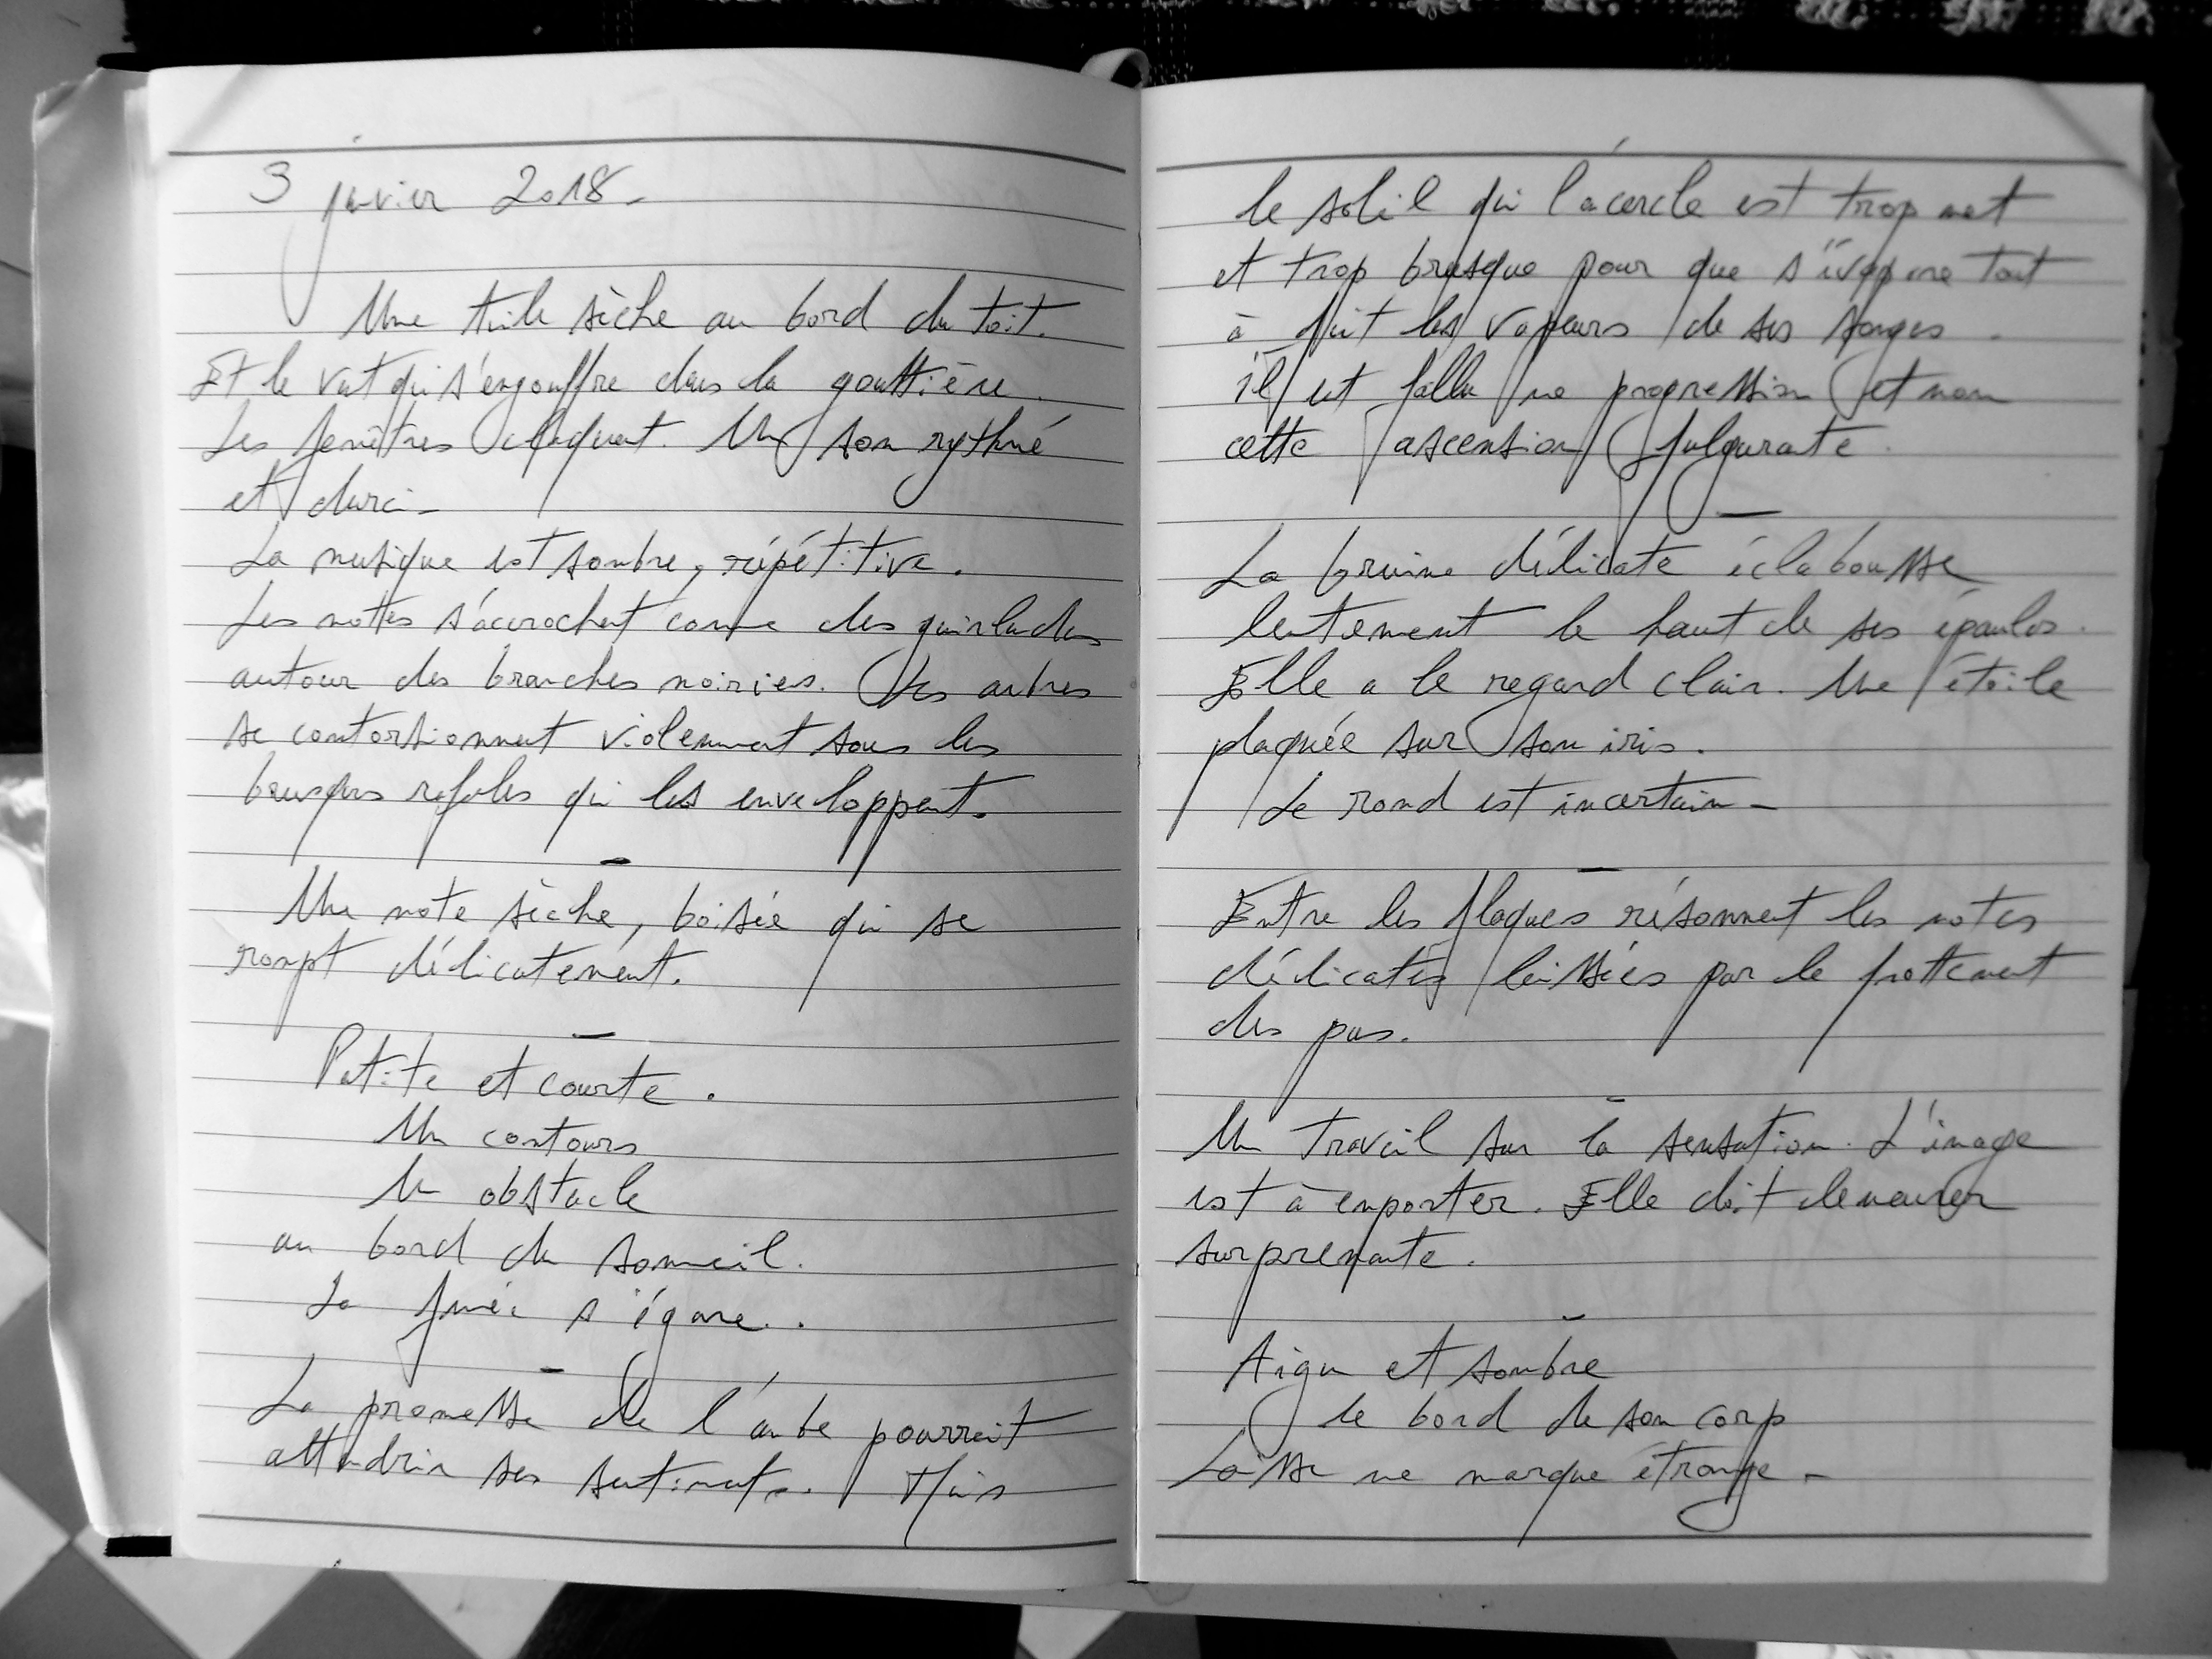 3 janvier 2018-
Une tuile sèche au bord du toit.
Et le vent qui s'engouffre dans la gouttière.
Les fenêtres claquent. Un son rythmé
et durci-
La musique est sombre, répétitive.
Les nottes s'accrochent comme des guirlandes
autour des branches noircies. Les arbres
se contorsionnent violemment sous les
brusques rafales qui les enveloppent.
Une note sèche, boisée qui se
rompt délicatement.
Petite et courte.
Un contours
Un obstacle
au bord du sommeil.
La fumée s'égare..
La promesse de l'aube pourrait
attendrir ses sentiments. Mais
le soleil qui l'acercle est trop net
et trop brusque pour que s'évapore tout
à fait les vapeurs de ses songes.
il eut fallu une progression et non
cette ascension fulgurante.
La bruine délicate éclabousse
lentement le haut de ses épaules.
Elle a le regard clair. Une étoile
plaquée sur son iris.
Le rond est incertain-
Entre les flaques résonnent les notes
délicates laissées par le frottement
des pas.
Un travail sur la sensation. L'image
est à emporter. Elle doit demeurer
surprenante.
Aigu et sombre
le bord de son corp
Laisse une marque étrange-